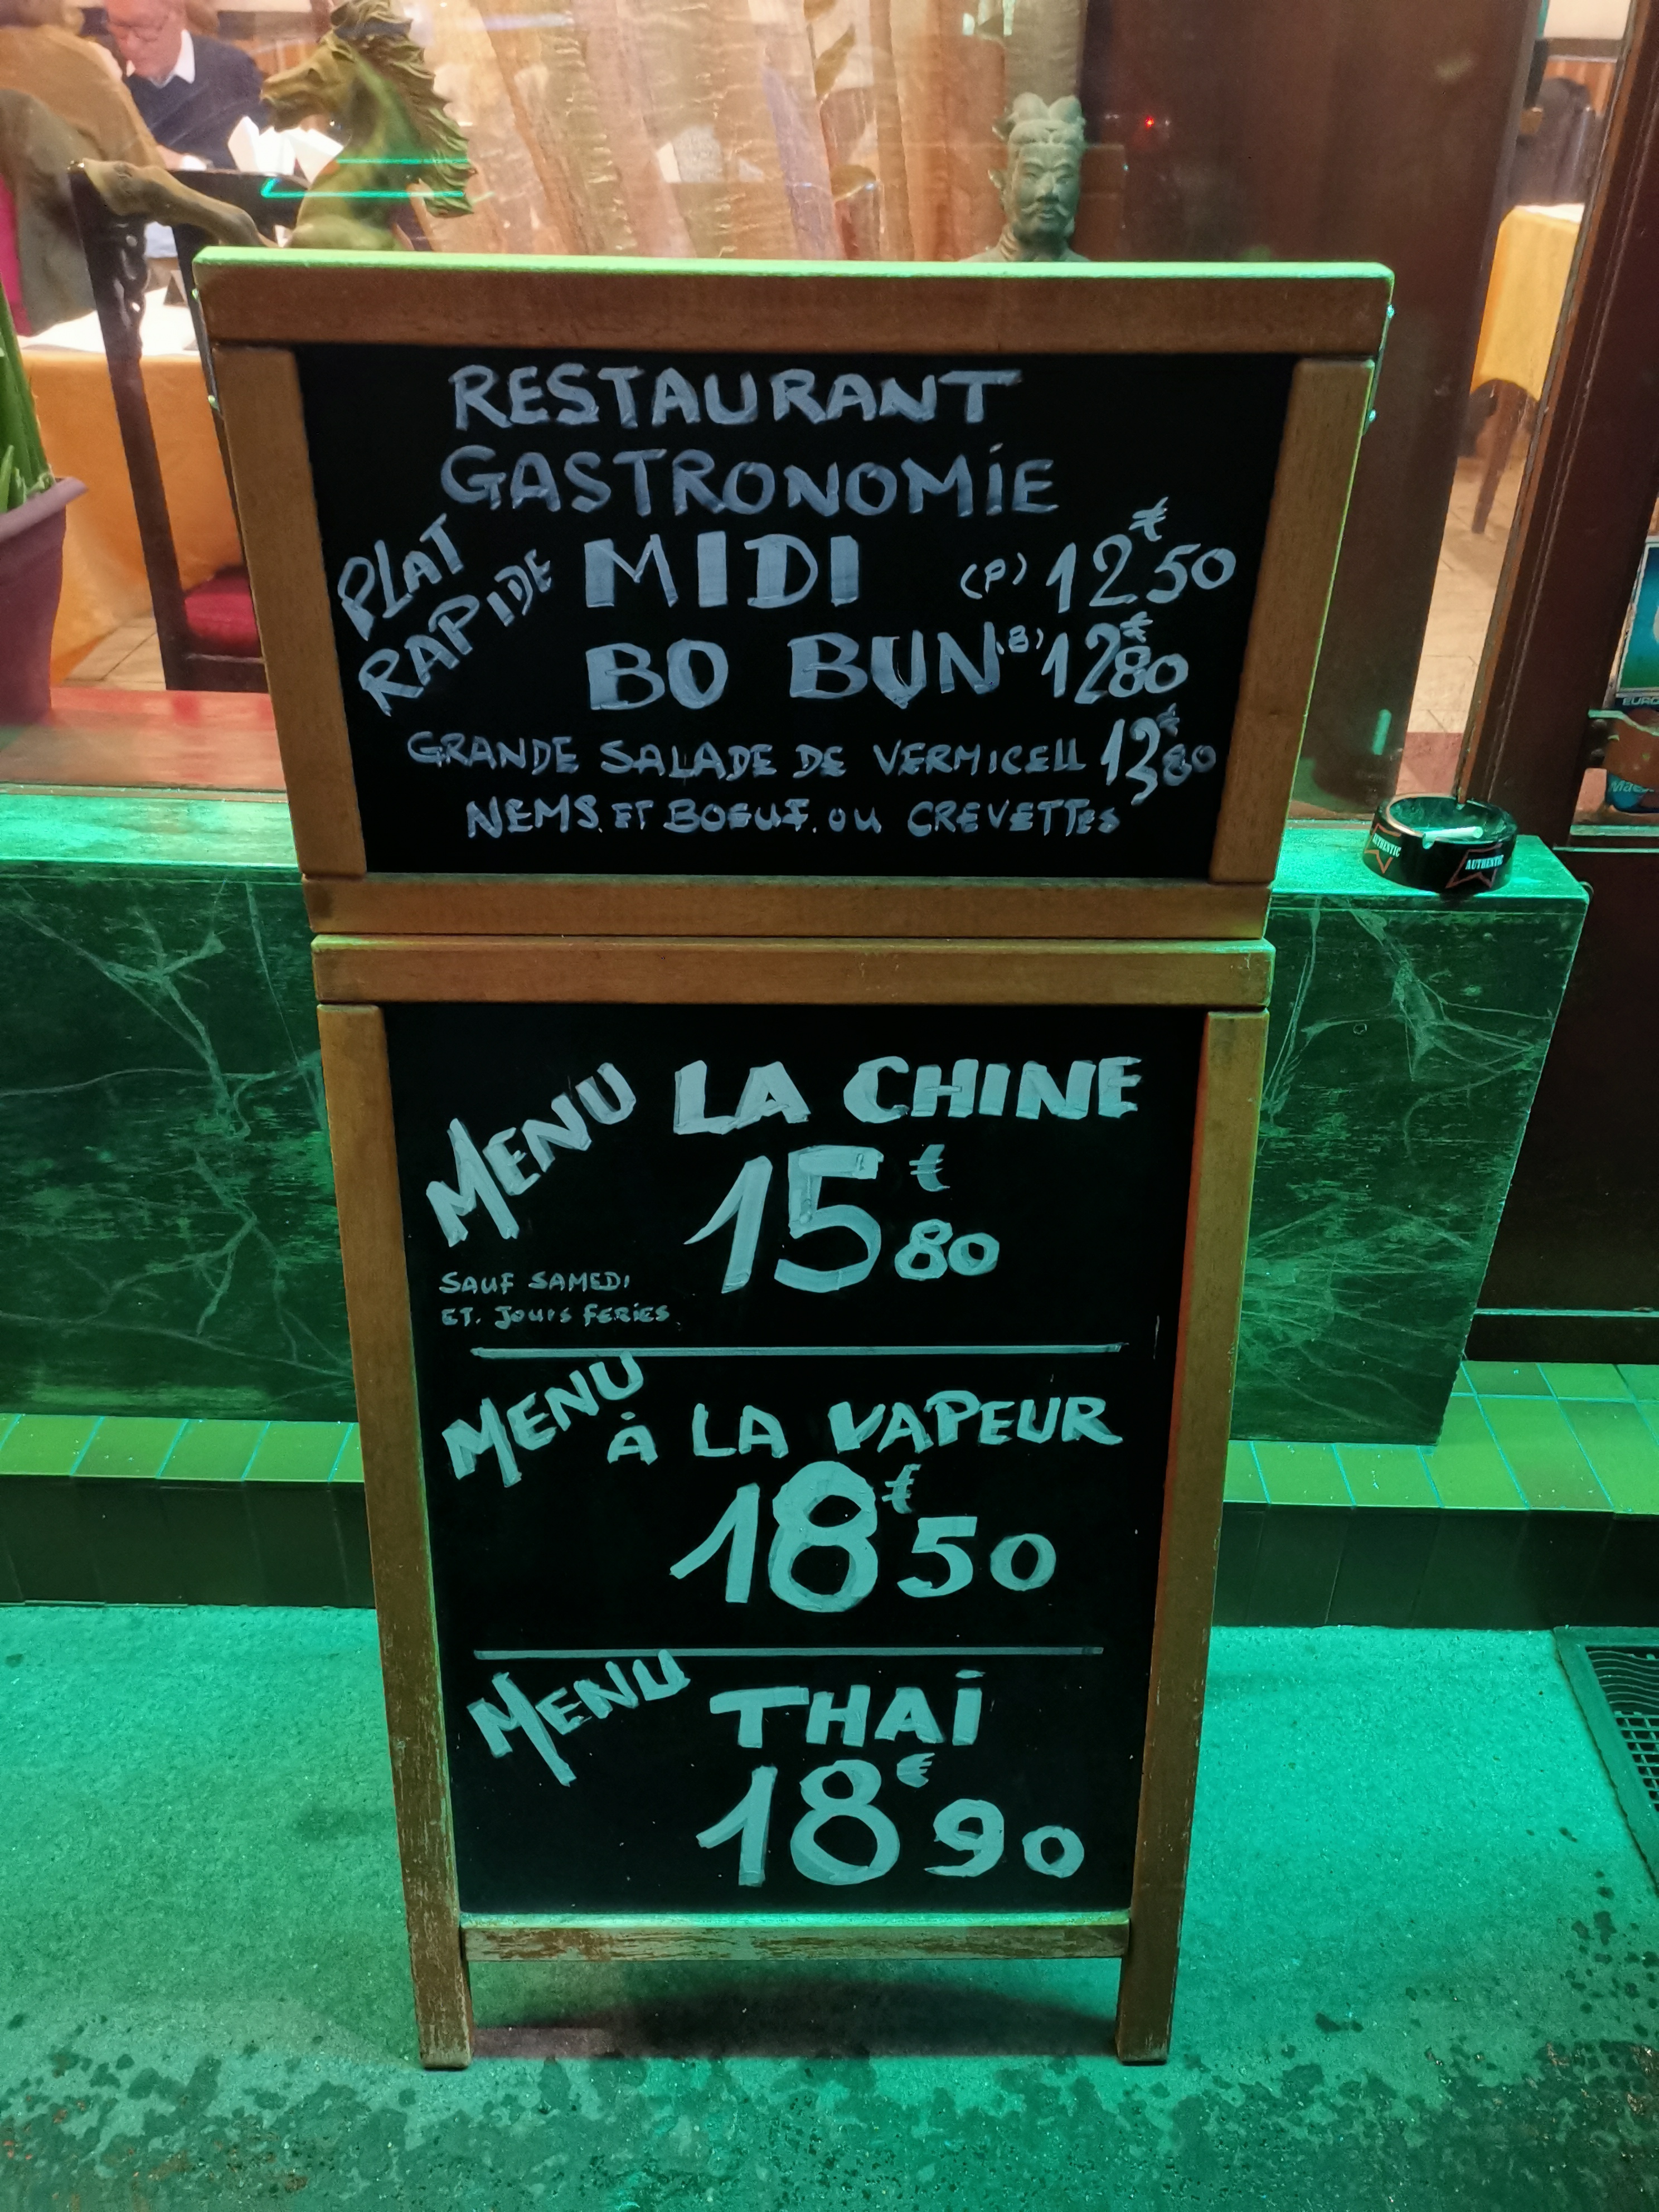 RESTAURANT
GASTRONOMIE
PLAT
RAPIDE
MIDI (P) 12€50
BO BUN (B) 12€80
GRANDE SALADE DE VERMICELL 13€80
NEMS. ET BOEUF. OU CREVETTES
MENU LA CHINE
15€80
SAUF SAMEDI
ET. JOURS FERIES.
MENU
À LA VAPEUR
18€50
MENU
THAÏ
18€90
AUTHENTIC
AUTHENTIC
EURO